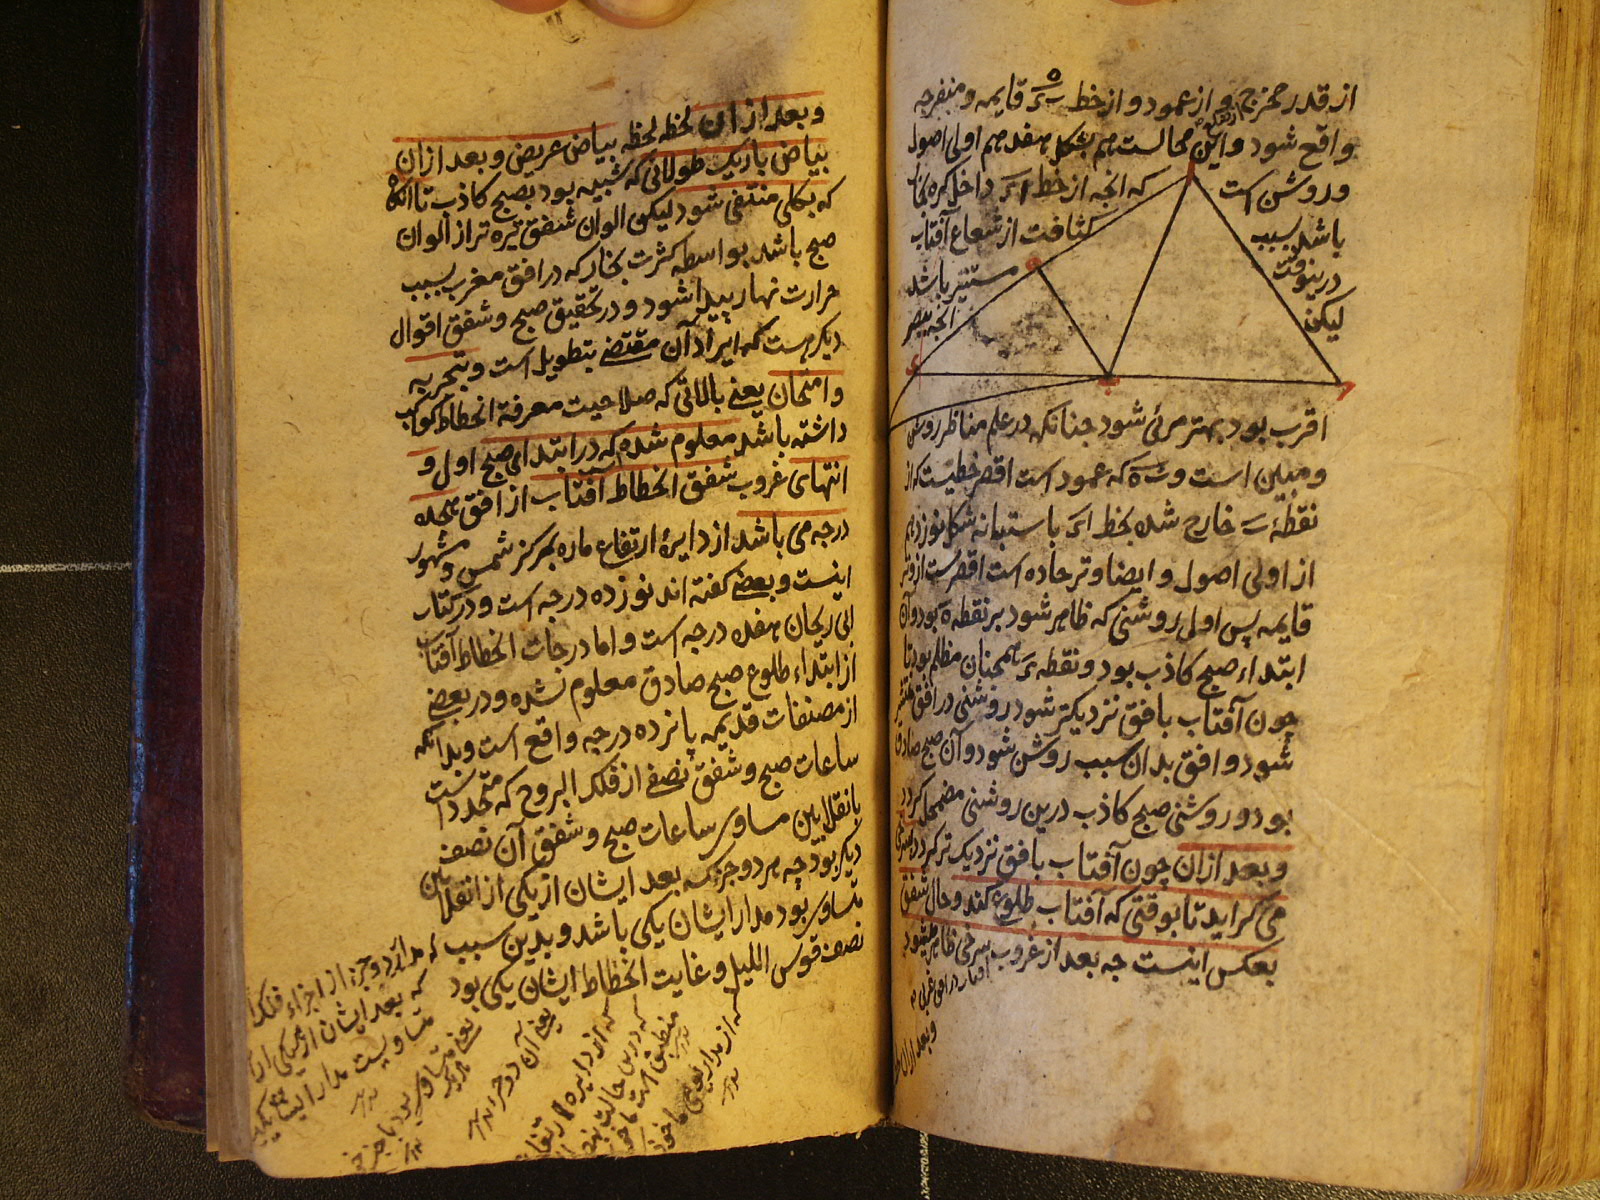 از قدر مخرج و از عمود و از خط ب ی قایمه و منفرجه
واقع شود و این محالست هم بشکل هفدهم اولی اصول
و روشن است که انچه از خط ا ی داخل کره بخار
باشد بسبب کثافت از شعاع آفتاب
درینوقت مستنیر باشد
لیکن انچه ببصر
اقرب بود بهتر مرئی شود چنانکه در علم مناظر روشن
و مبین است و ب ه که عمود است اقصر خطیست که از
نقطهٔ ب خارج شده بخط ا ی باستبانه شکل نوزدهم
از اولی اصول و ایضا وتر حاده است اقصرست از وتر
قایمه پس اول روشنی که ظاهر شود بر نقطه ه بود و آن
ابتداء صبح کاذب بود و نقطه ی همچنان مظلم بود تا
چون آفتاب بافق نزدیکتر شود روشنی در افق منتشر
شود و افق بدان سبب روشن شود و آن صبح صادق
بود و روشنی صبح کاذب درین روشنی مضمحل کردد
و بعد ازان چون آفتاب بافق نزدیک تر کردد
می کراید تا بوقتی که آفتاب طلوع کند و حال شفق
بعکس اینست چه بعد از غروب سرخی ظاهر میشود
و بعد ازان
و بعد ازان لحظه لحظه بیاض عریض و بعد ازان
بیاض باریک طولانی که شبیه بود بصبح کاذب تا انکاه
که بکلی منتفی شود لیکن الوان شفق تیره تر از الوان
صبح باشد بواسطه کثرت بخار که در افق مغرب بسبب
حرارت نهار پیدا شود و در تحقیق صبح و شفق اقوال
دیکر هست که ایراد آن مقتضی بتطویل است و بتجربه
و امتحان یعنی بالاتی که صلاحیت معرفة انحطاط کواکب
داشته باشد معلوم شده که در ابتدای صبح اول و
انتهای غروب شفق انحطاط آفتاب از افق هجده
درجه می باشد از دایرهٔ ارتفاع ماره بمرکز شمس و مشهور
اینست و بعضی کفته اند نوزده درجه است و در کتاب
ابی ریحان هفده درجه است و اما درجات انحطاط آفتاب
از ابتداء طلوع صبح صادق معلوم نشده و در بعضی
از مصنفات قدیمه پانزده درجه واقع است و بدانکه
ساعات صبح و شفق نصفی از فلک البروج که متحدد است
بانقلابین مساوی ساعات صبح و شفق آن نصف
دیکر بود چه هر دو جزء که بعد ایشان از یکی از انقلابین
متساوی بود مدار ایشان یکی باشد و بدین سبب
نصف قوس اللیل و غایت انحطاط ایشان یکی بود
که بعد ایشان از یکی از